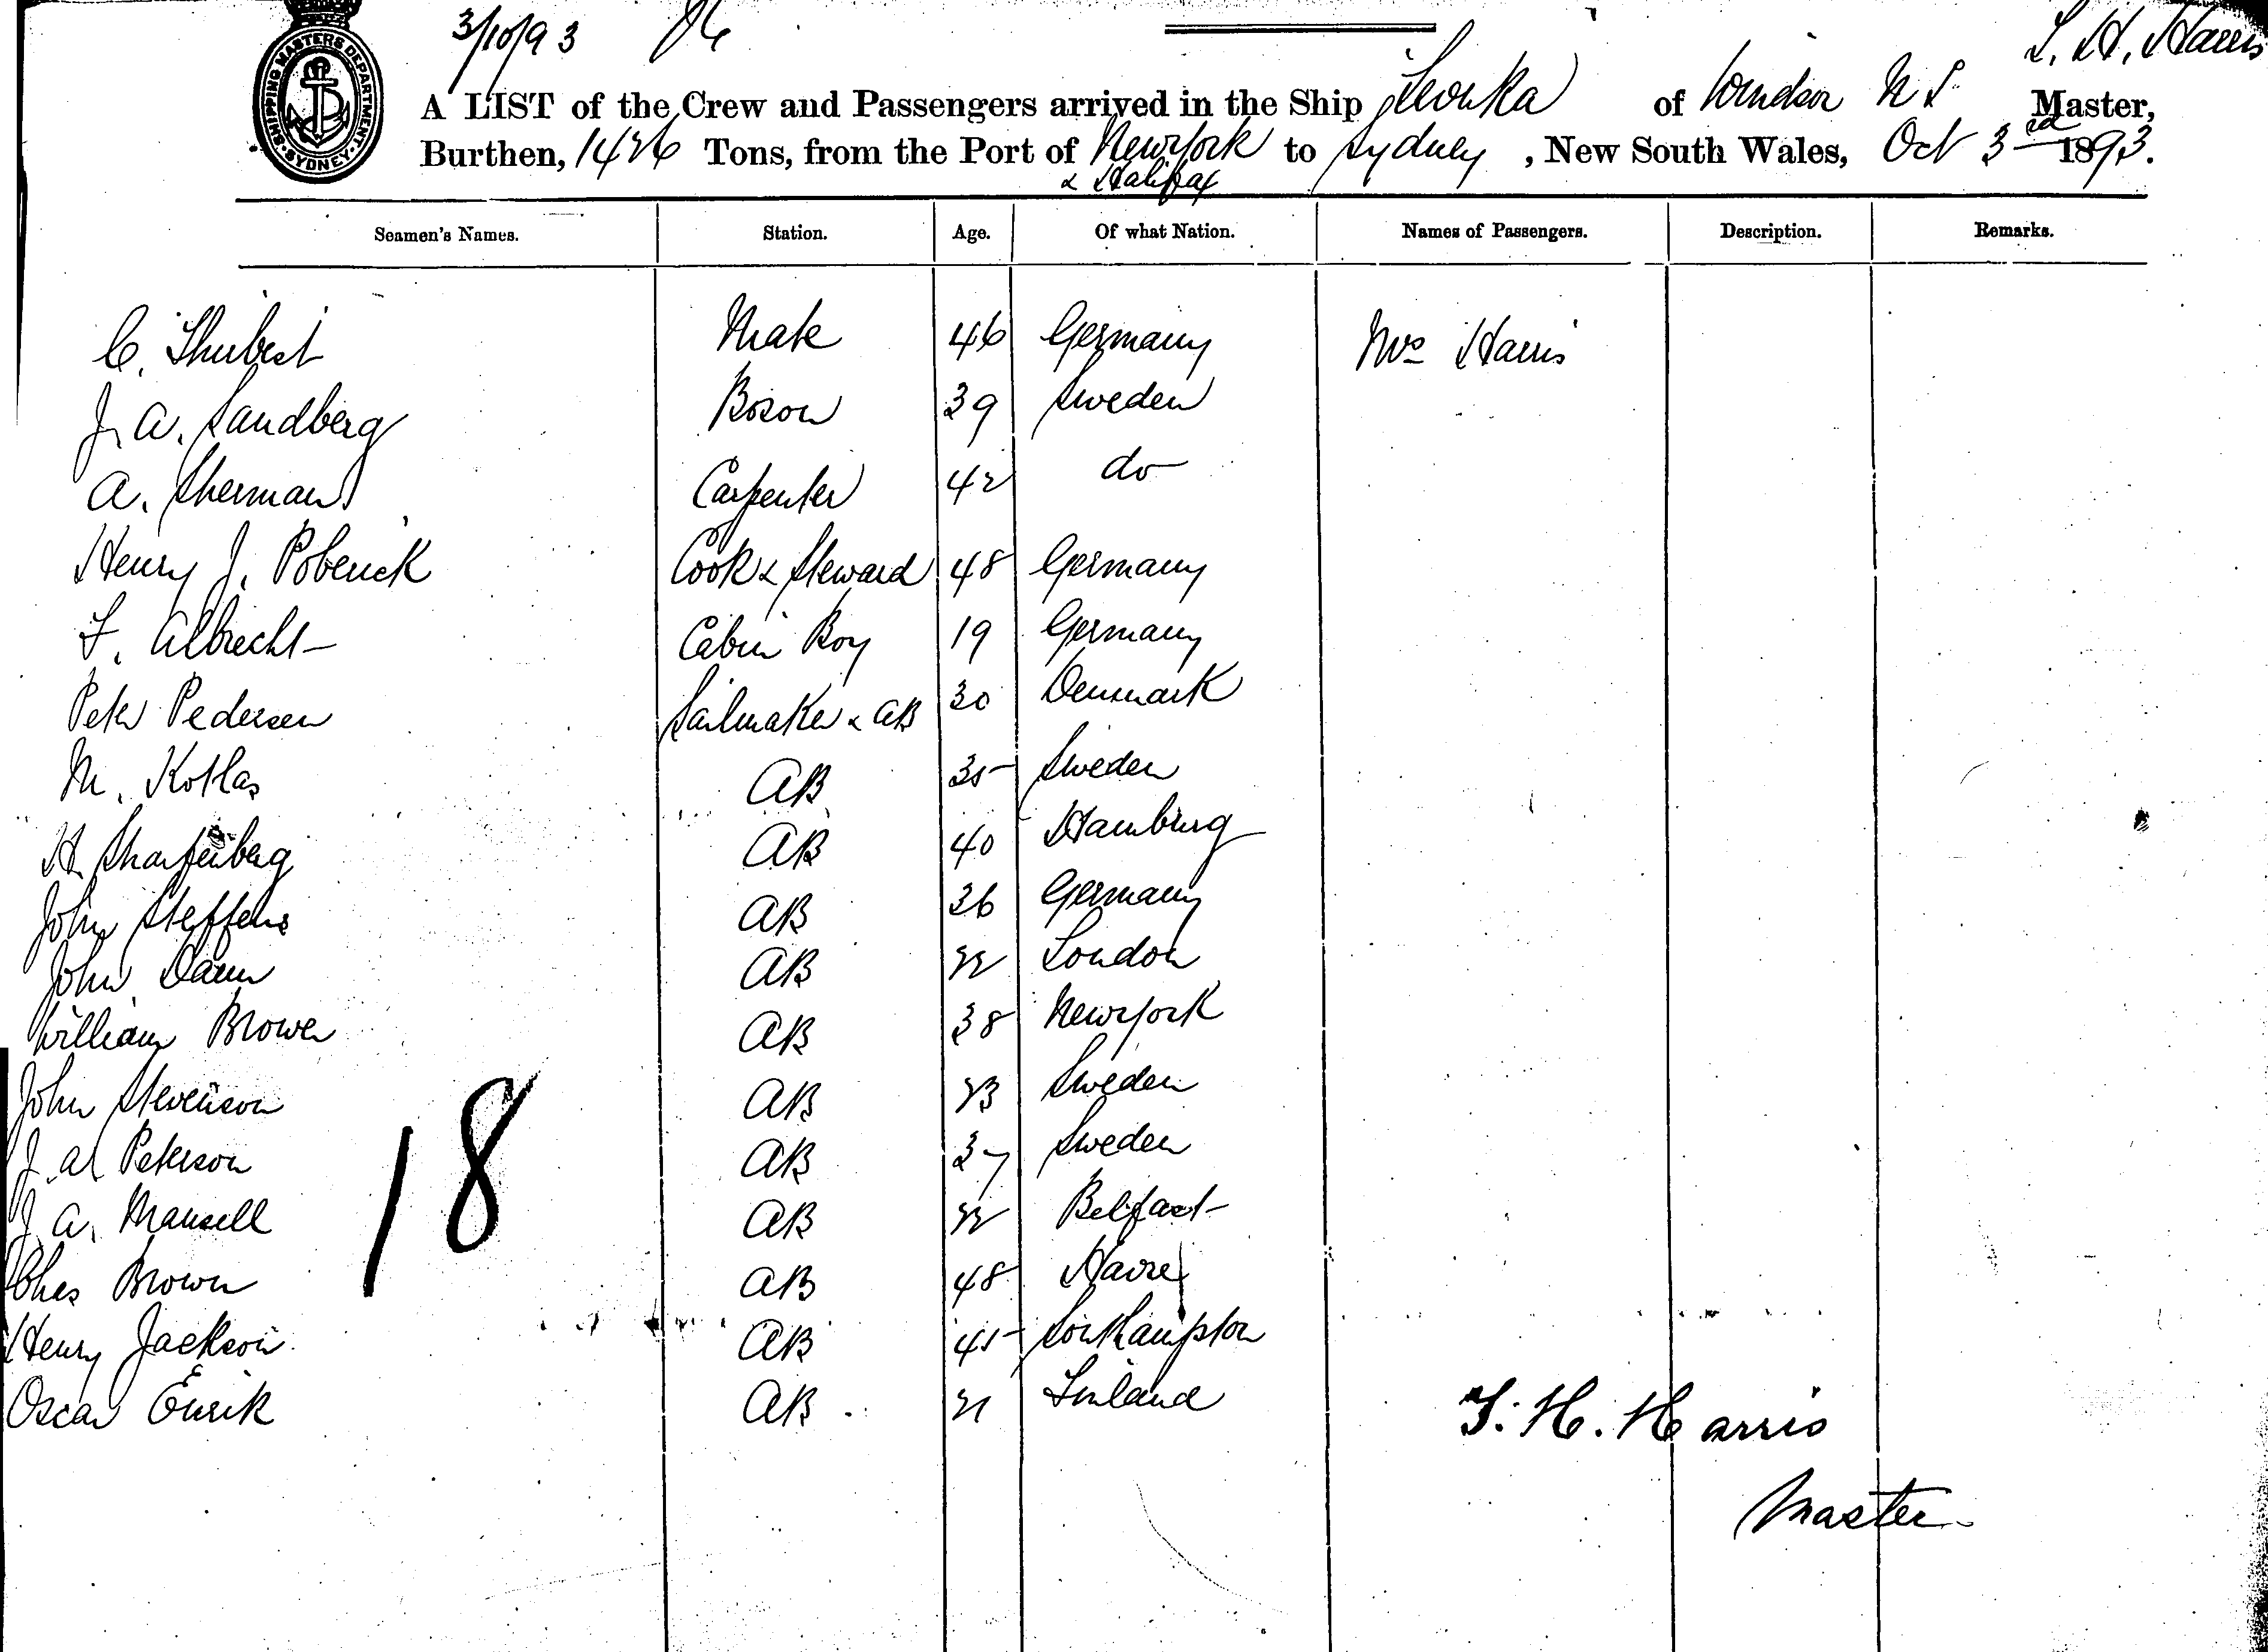 3/10/93
SHIPPING MASTERS DEPARTMENT. SYDNEY.
A LIST of the Crew and Passengers arrived in the Ship of Windsor N S. T. H. Harris Master,
Burthen, 1426 Tons, from the Port of New York & Halifax to Sydney, New South Wales, Oct 3rd 1893.
Seamen's Names. Station. Age. Of what Nation. Names of Passengers. Description. Remarks.
C. Shubert Mate 46 Germany Mrs Harris
J. A. Sandberg Boson 39 Sweden
A. Sherman Carpenter 42 do
Henry J. Pobenck Cook & Steward 48 Germany
F. Albrecht Cabin Boy 19 Germany
Peter Pedersen Sailmaker & AB 30 Denmark
M. Kotlas AB 35 Sweden
H. Sharfenberg AB 40 Hamburg
John Steffens AB 36 Germany
John AB 22 London
William Brown AB 38 New York
John Stevenson AB 23 Sweden
J. A. Peterson AB 37 Sweden
J. A. Mansell AB 22 Belfast
Chas Brown AB 48 Havre
Henry Jackson AB 45 Southampton
Oscar Enrik AB 21 Finland
18
T. H. Harris
Master